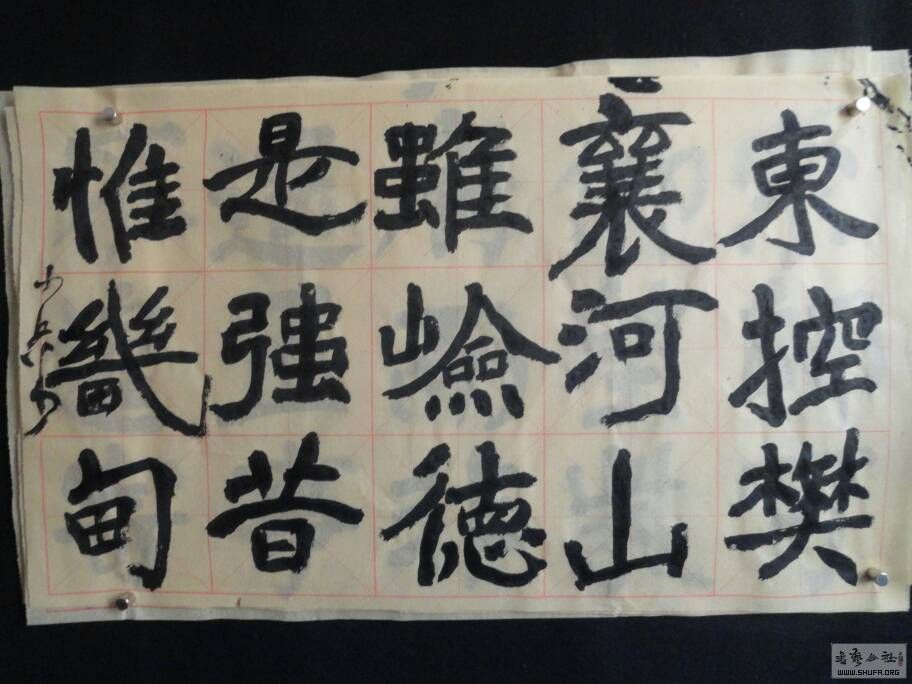 東控樊
襄河山
雖嶮德
是强昔
惟畿甸
書藝公社
WWW.SHUFA.ORG